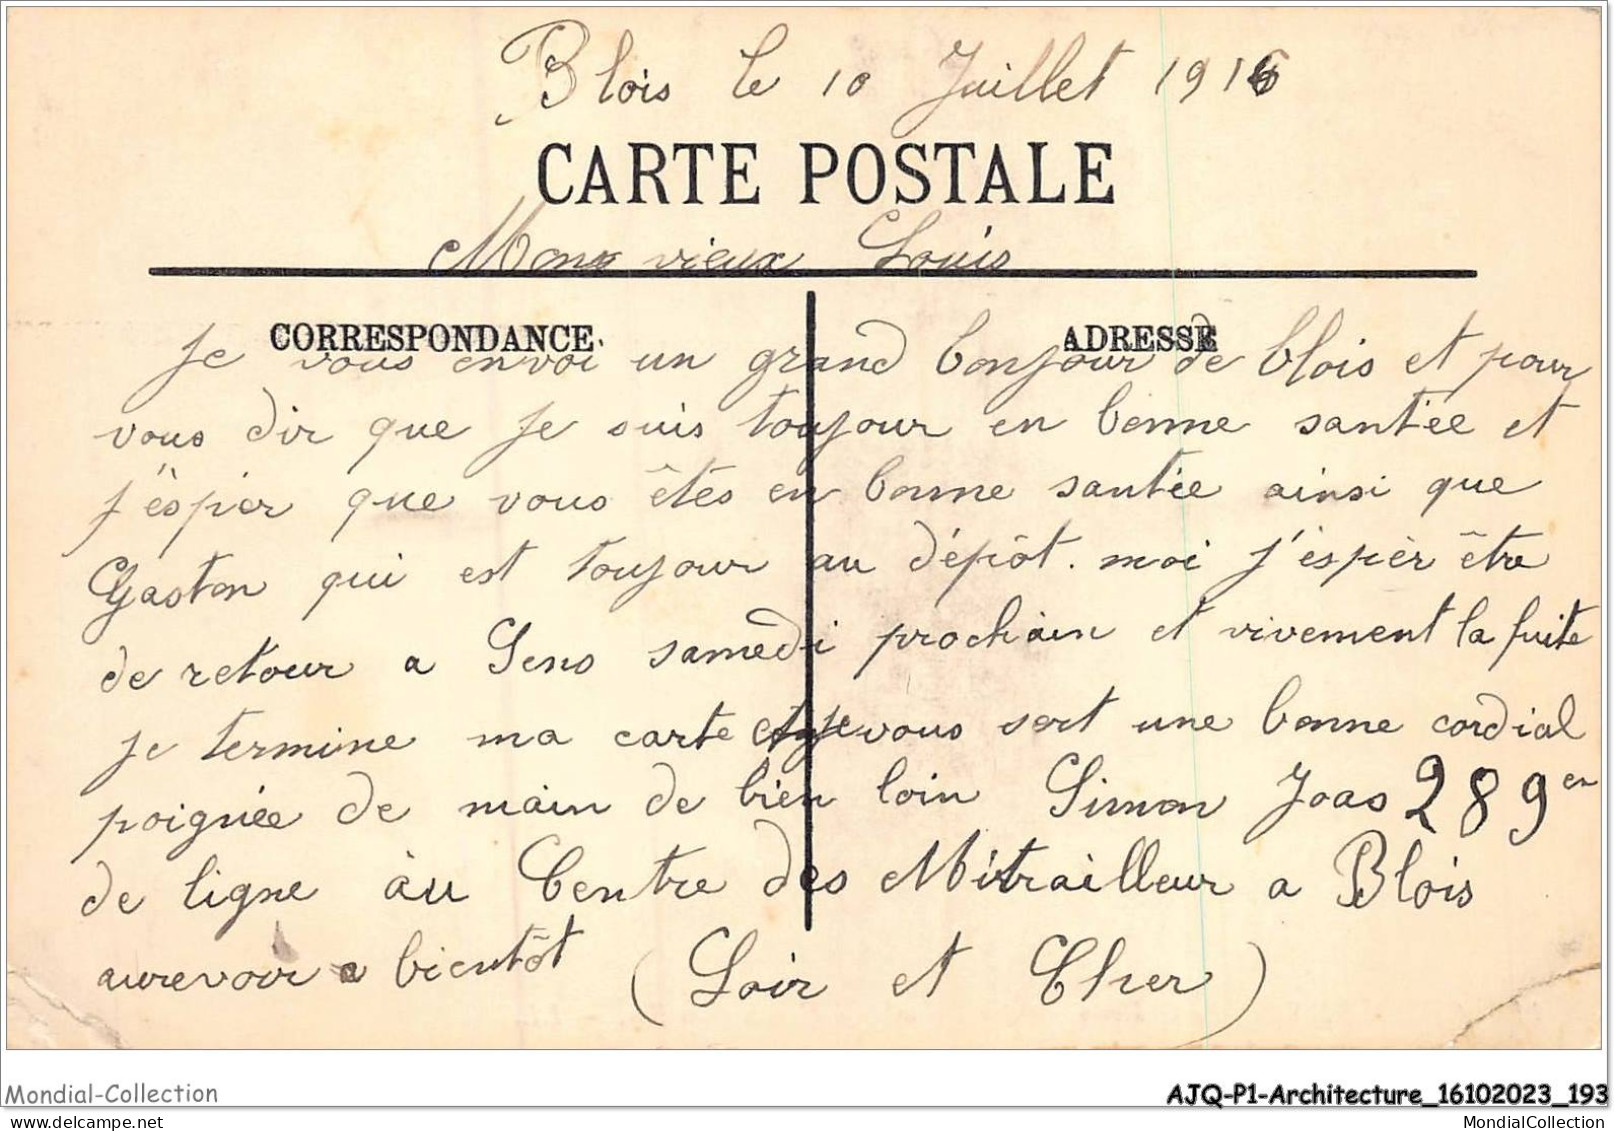 Blois le 10 Juillet 1916
CARTE POSTALE
Mons vieux Louis
CORRESPONDANCE
ADRESSE
Je vous envoi un grand bonjour de blois et pour
vous dir que je suis toujour en bonne santée et
j'éspier que vous êtes en bonne santée ainsi que
Gaston qui est toujour au dépôt. moi j'espièr être
de retour a Sens samedi prochain et vivement la fuite
je termine ma carte et je vous sert une bonne cordial
poignée de main de bien loin Simon Joas 289en
de ligne au Centre des Mitrailleur a Blois
aurevoir a bientôt (Loir et Cher)
Mondial-Collection
AJQ-P1-Architecture_16102023_193
delcampe.net
MondialCollection